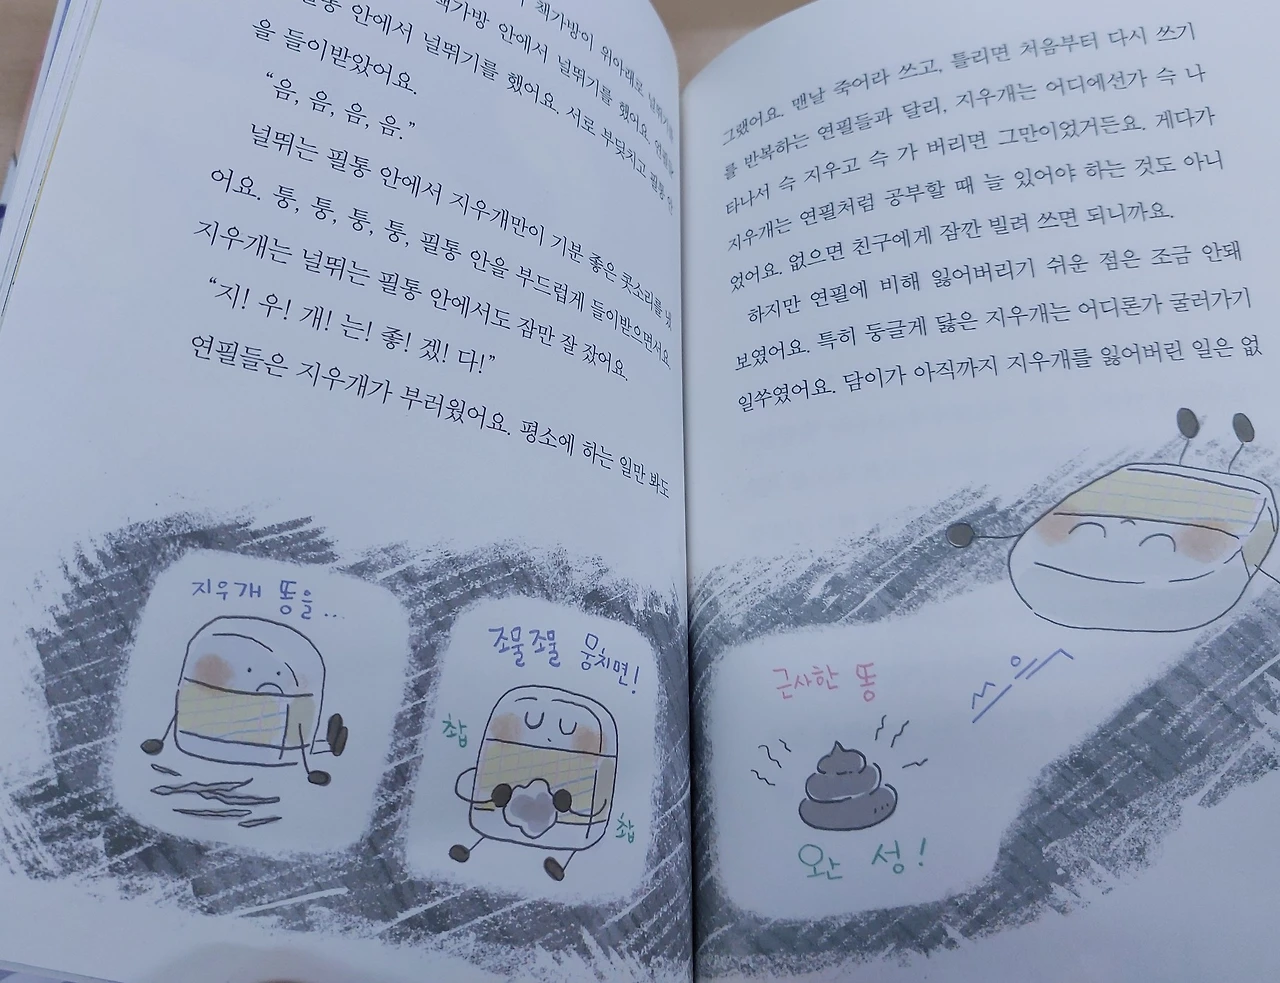 책가방이 위아래로
책가방 안에서 널뛰기를 했어요.
필통 안에서 널뛰기를 했어요. 서로 부딪치고 필통 안
을 들이받았어요.
“음, 음, 음, 음.”
널뛰는 필통 안에서 지우개만이 기분 좋은 콧소리를 냈
어요. 퉁, 퉁, 퉁, 퉁, 필통 안을 부드럽게 들이받으면서요.
지우개는 널뛰는 필통 안에서도 잠만 잘 잤어요.
“지! 우! 개! 는! 좋! 겠! 다!”
연필들은 지우개가 부러웠어요. 평소에 하는 일만 봐도
지우개 똥을..
조물조물 뭉치면!
찹
찹
그랬어요. 맨날 죽어라 쓰고, 틀리면 처음부터 다시 쓰기
를 반복하는 연필들과 달리, 지우개는 어디에선가 슥 나
타나서 슥 지우고 슥 가 버리면 그만이었거든요. 게다가
지우개는 연필처럼 공부할 때 늘 있어야 하는 것도 아니
었어요. 없으면 친구에게 잠깐 빌려 쓰면 되니까요.
하지만 연필에 비해 잃어버리기 쉬운 점은 조금 안돼
보였어요. 특히 둥글게 닳은 지우개는 어디론가 굴러가기
일쑤였어요. 담이가 아직까지 지우개를 잃어버린 일은 없
근사한 똥
완성!